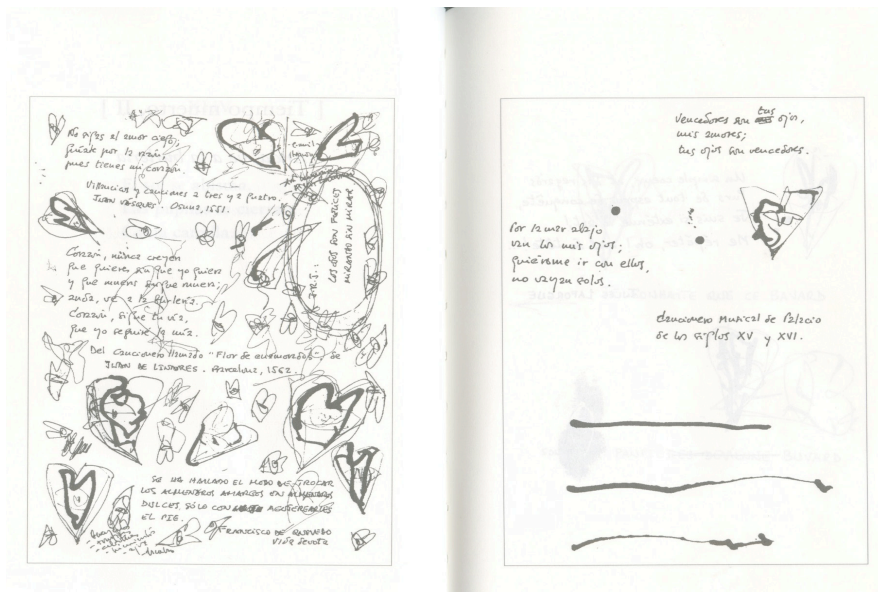 No sigas al amor ciego,
guíate por la razón,
pues tienes mi corazón
Villancicos y canciones a tres y a quatro.
JUAN VÁSQUEZ. Osuna, 1551.
LOS OJOS SON FELICES
MIRANDO SIN MIRAR
Corazón, nunca creyen
que quieres sin que yo quiera
y que mueras sin que muera;
anda, ve a la
Corazón, sigue tu vía,
que yo seguiré la mía.
Del cancionero llamado "Flor de enamorados", de
JUAN DE LINARES. Barcelona, 1562.
SE HA HALLADO EL MODO DE TROCAR
LOS ALMENDROS AMARGOS EN ALMENDROS
DULCES, SÓLO CON AGUJEREARLES
EL PIE.
FRANCISCO DE QUEVEDO
Vida devota
Vencedores son tus ojos,
mis amores;
tus ojos son vencedores.
Por la mar abajo
van los mis ojos;
quiérome ir con ellos,
no vayan solos.
Cancionero Musical de Palacio
de los siglos XV y XVI.